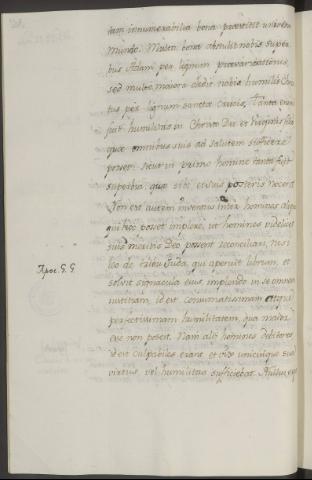 tam innumerabilia bona præstitit universo
mundo. Multa bona abstulit nobis super
bus Adam per lignum prævaricationis,
sed multo maiora dedit nobis humilis Chri
tus per lignum sanctæ Crucis. Tanta enim
fuit humilitas in Christo Dei et Virginis filio
quæ omnibus suis ad salutem sufficere
posset sicut in primo homine tanta fuit
superbia, quæ sibi et suis posteris noceret.
Non est autem inventus inter homines aliquis
qui hoc posset implere, ut homines videlicet
suis meritis Deo possent reconciliari, nisi
leo de tribu Juda, qui aperuit librum, et
Apoc. 5. 5
solvit signacula eius implendo in se omnem
iustitiam, id est consummatissimam atque
perfectissimam humilitatem, qua maior
esse non potest. Nam alii homines debitores
id est culpabiles erant, et vix unicuique sua
virtus, vel humilitas sufficiebat.